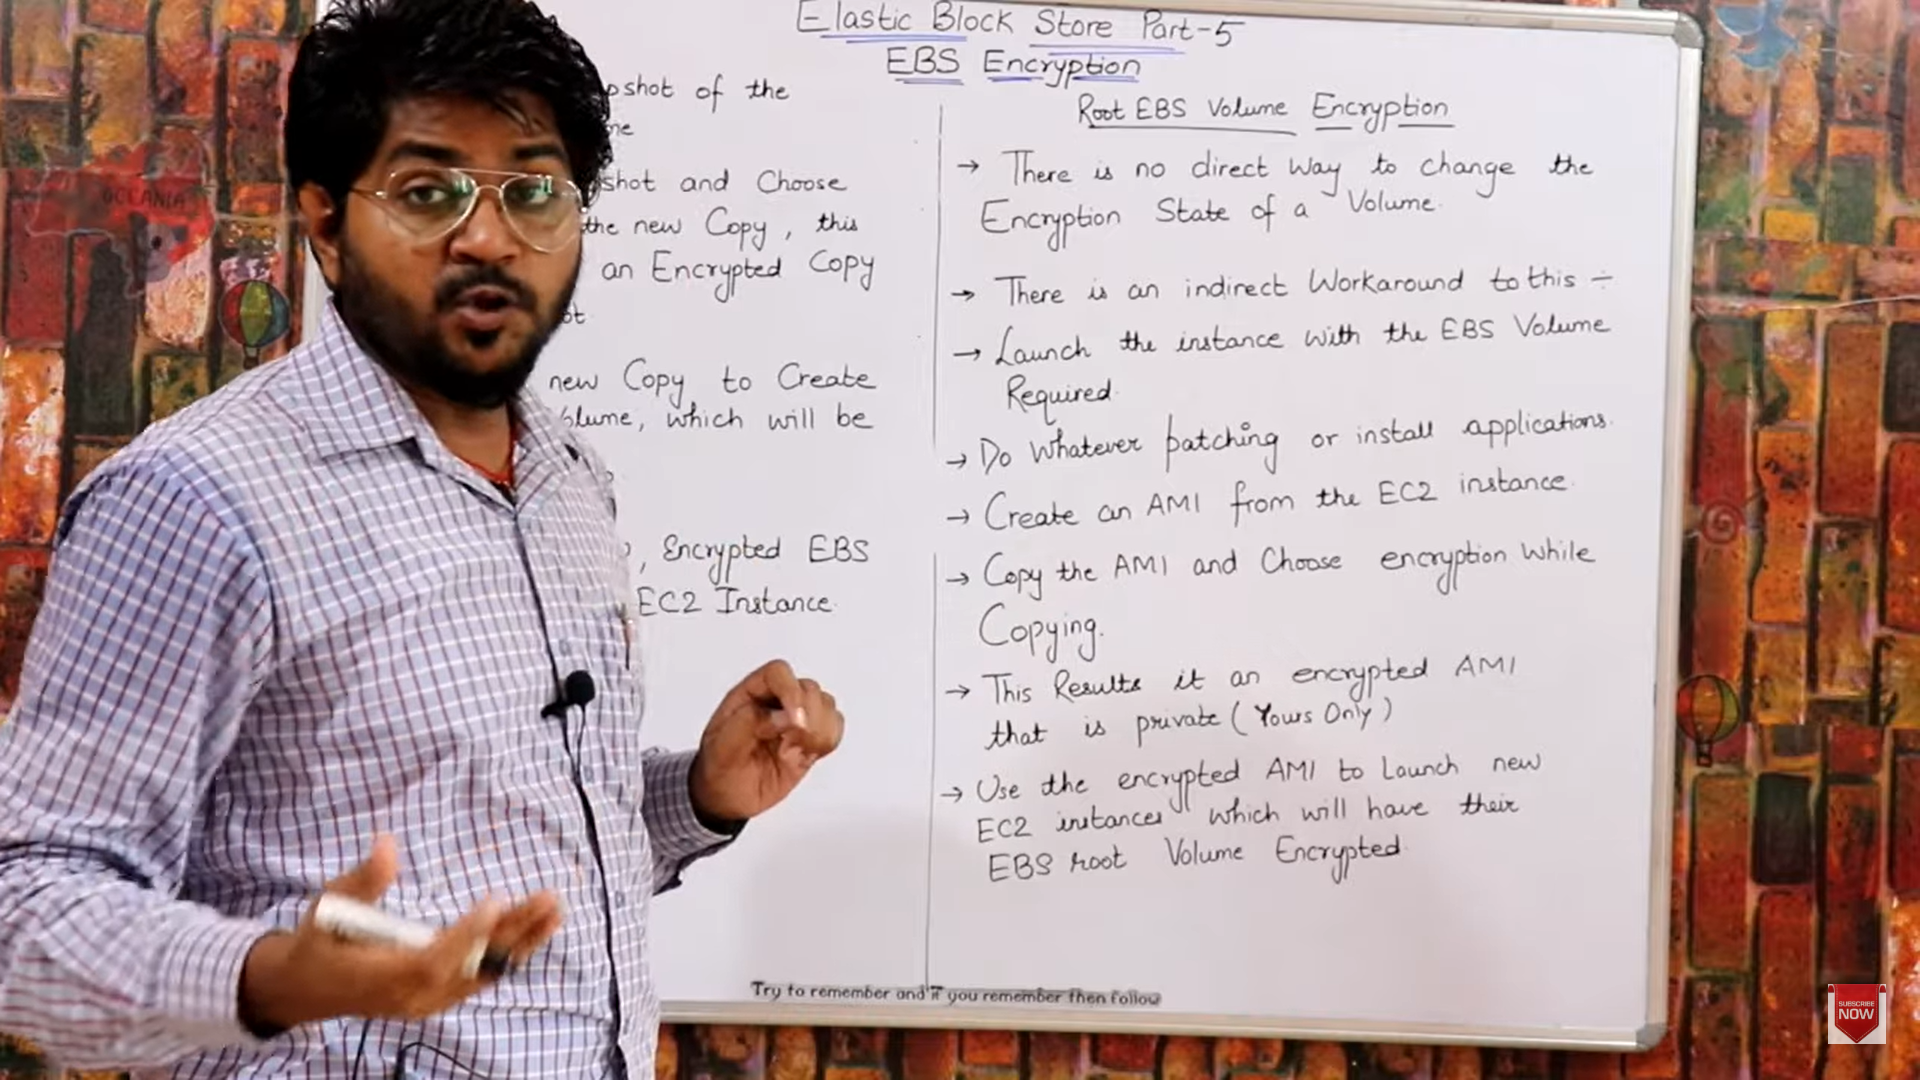 Elastic Block Store Part-5
EBS Encryption
pshot of the
me
shot and Choose
the new Copy, this
an Encrypted Copy
ot.
new Copy to Create
olume, which will be
, Encrypted EBS
EC2 Instance.
Root EBS Volume Encryption
→ There is no direct way to change the
Encryption State of a Volume.
→ There is an indirect Workaround to this ÷
→ Launch the instance with the EBS Volume
Required.
→ Do Whatever patching or install applications.
→ Create an AMI from the EC2 instance.
→ Copy the AMI and Choose encryption While
Copying.
→ This Results it an encrypted AMI
that is private (Yours Only)
→ Use the encrypted AMI to Launch new
EC2 instances which will have their
EBS root Volume Encrypted.
Try to remember and if you remember then follow
OCEANIA
SUBSCRIBE
NOW